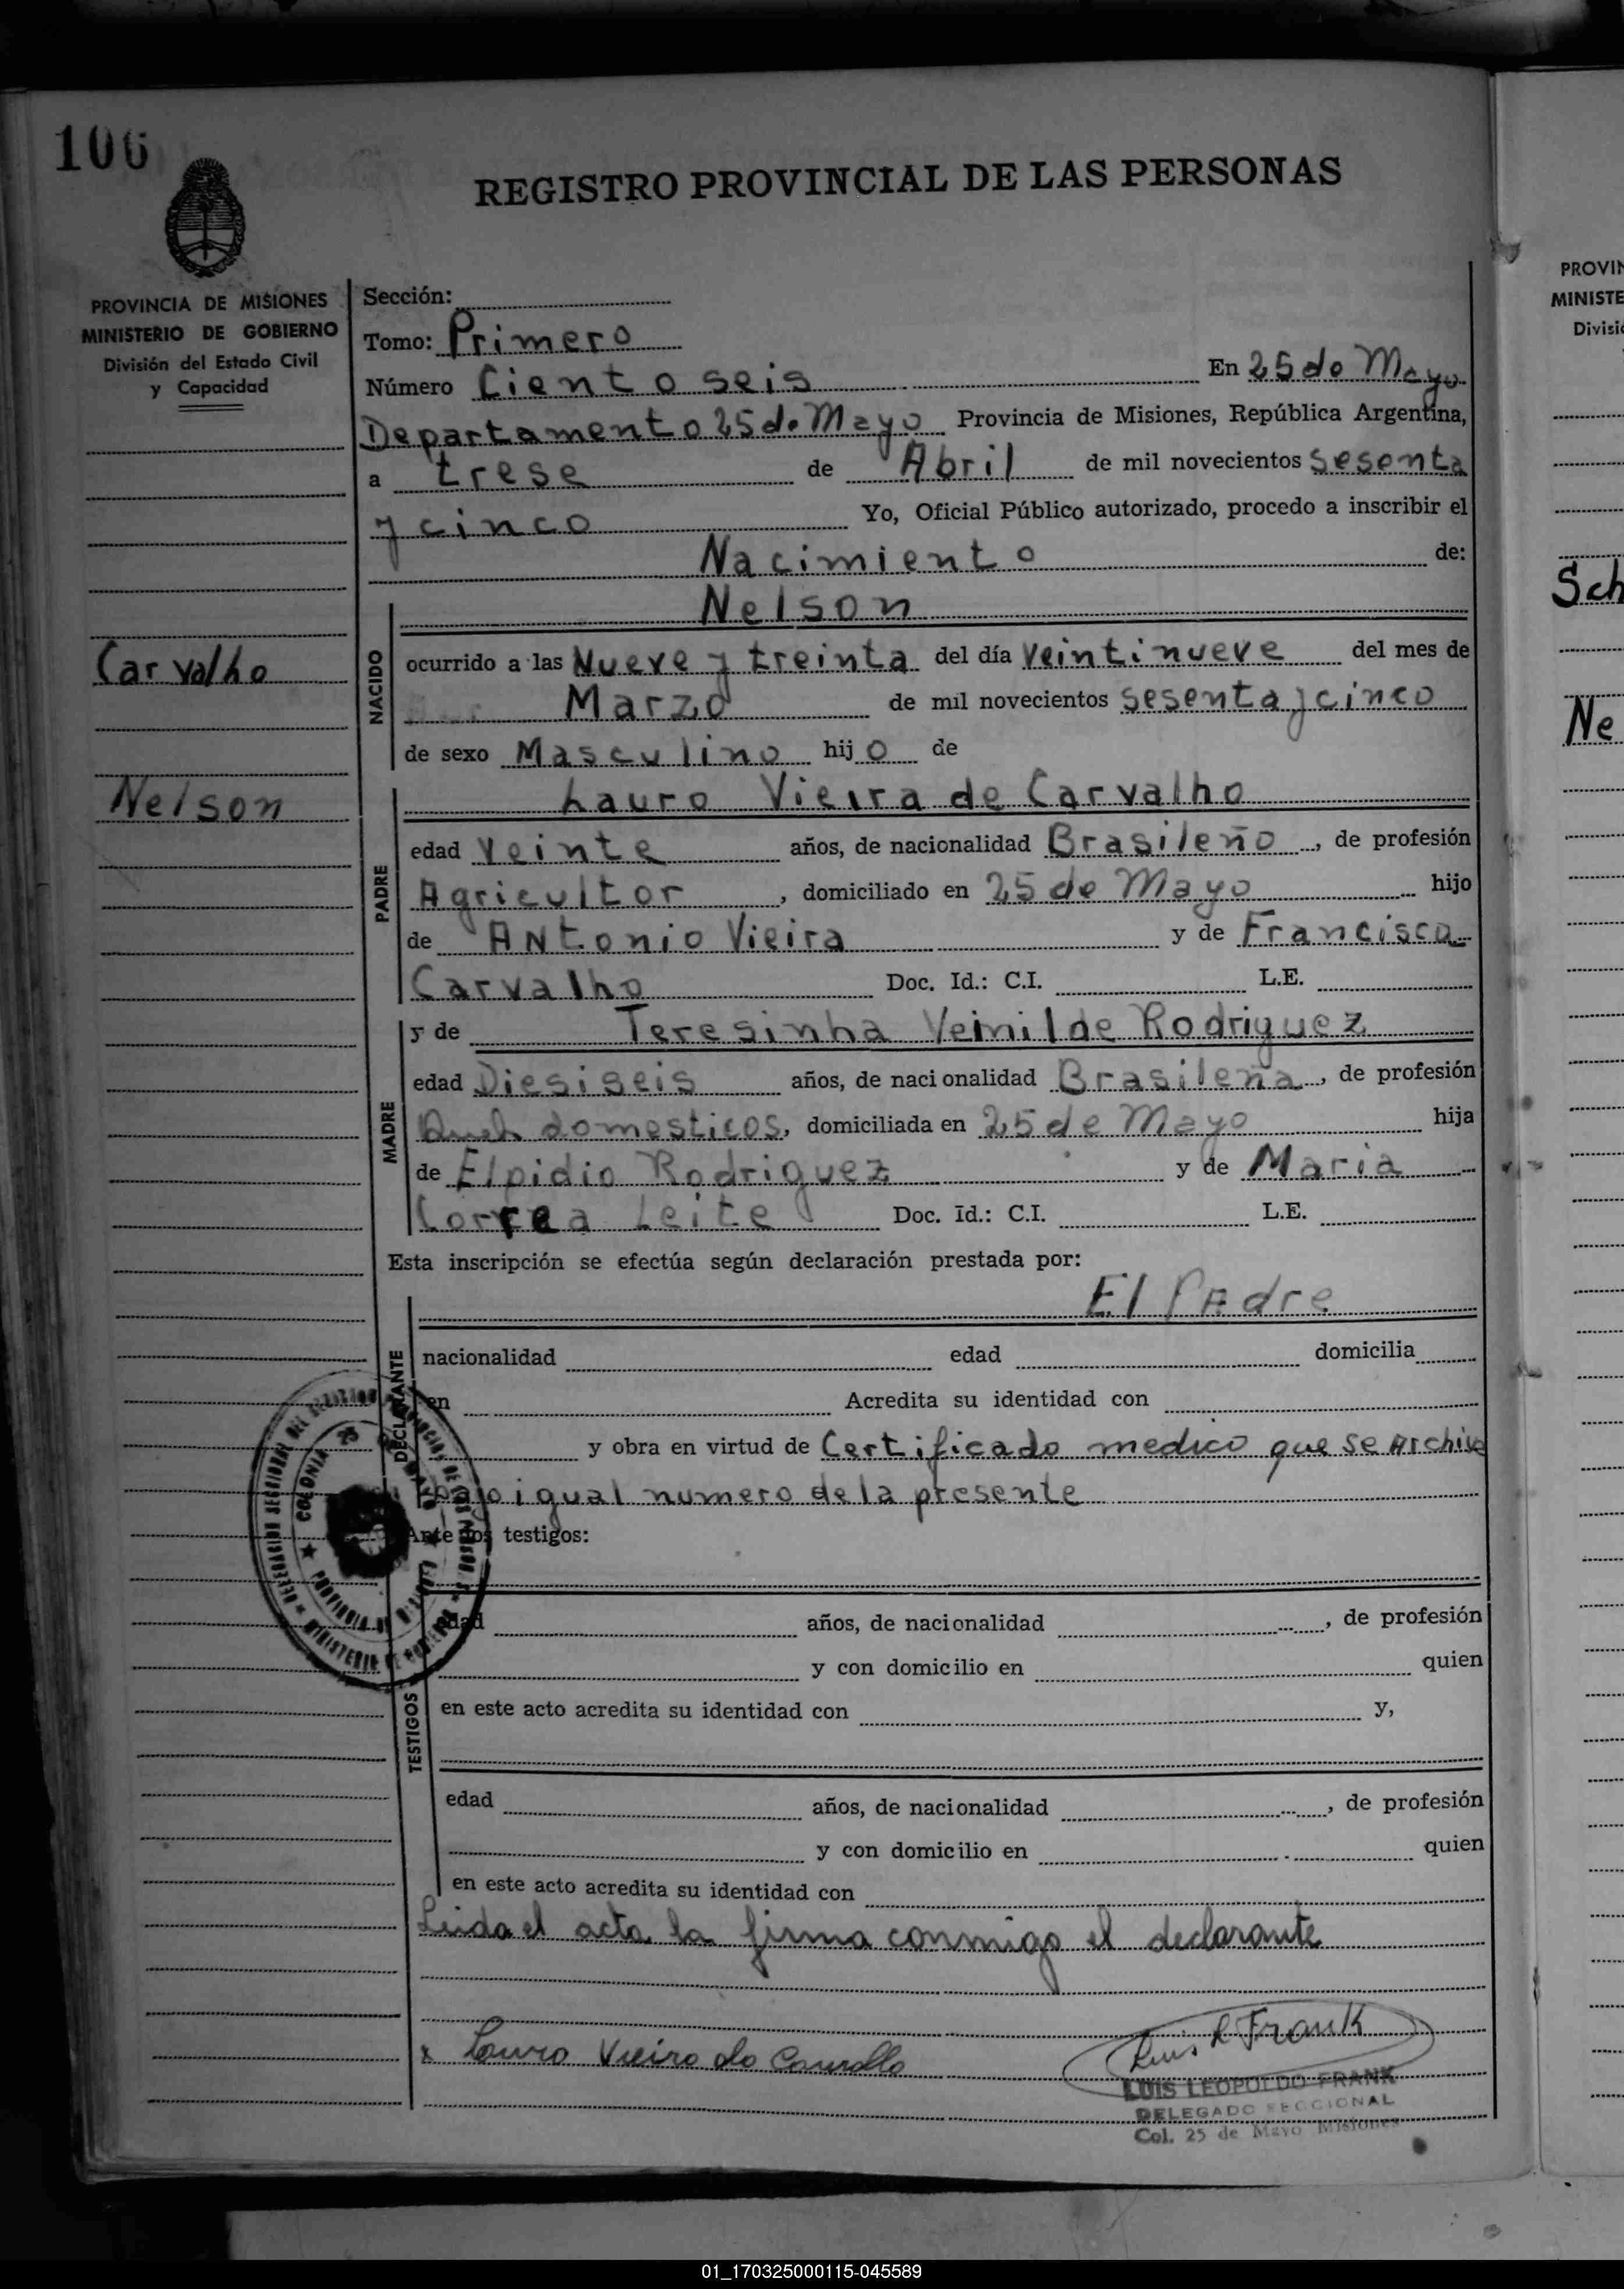 106
REGISTRO PROVINCIAL DE LAS PERSONAS
PROVINCIA DE MISIONES
MINISTERIO DE GOBIERNO
División del Estado Civil
y Capacidad
Carvalho
Nelson
Sección:
Tomo: Primero
Número Ciento seis En 25 de Mayo
Departamento 25 de Mayo Provincia de Misiones, República Argentina,
a trese de Abril de mil novecientos sesenta
y cinco Yo, Oficial Público autorizado, procedo a inscribir el
Nacimiento de:
NACIDO
Nelson
ocurrido a las Nueve y treinta del día veintinueve del mes de
Marzo de mil novecientos sesenta y cinco
de sexo Masculino hijo de
PADRE
Lauro Vieira de Carvalho
edad Veinte años, de nacionalidad Brasileño, de profesión
Agricultor, domiciliado en 25 de Mayo hijo
de ANtonio Vieira y de Francisca
Carvalho Doc. Id.: C.I. L.E.
MADRE
y de Teresinha Veinilde Rodriguez
edad Diesiseis años, de nacionalidad Brasileña, de profesión
Queh domesticos, domiciliada en 25 de Mayo hija
de Elpidio Rodriguez y de Maria
Correa Leite Doc. Id.: C.I. L.E.
Esta inscripción se efectúa según declaración prestada por:
El PAdre
DECLARANTE
nacionalidad edad domicilia
en Acredita su identidad con
y obra en virtud de Certificado medico que se Archiva
bajo igual numero de la presente
Ante los testigos:
COLONIA 25
PROVINCIA DE
MINISTERIO DE
TESTIGOS
edad años, de nacionalidad , de profesión
y con domicilio en quien
en este acto acredita su identidad con y,
edad años, de nacionalidad , de profesión
y con domicilio en quien
en este acto acredita su identidad con
Leida el acta la firma conmigo el declarante
x Lauro Vieira de Carvallo
Luis L Frank
LUIS LEOPOLDO FRANK
DELEGADO SECCIONAL
Col. 25 de Mayo Misiones
PROVIN
MINISTE
Divisió
Sch
Ne
01_170325000115-045589